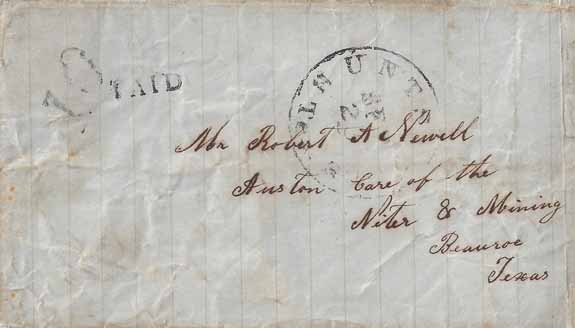 10 PAID
Mr Robert A Newell
Auston Care of the
Niter & Mining
Beauroe
Texas